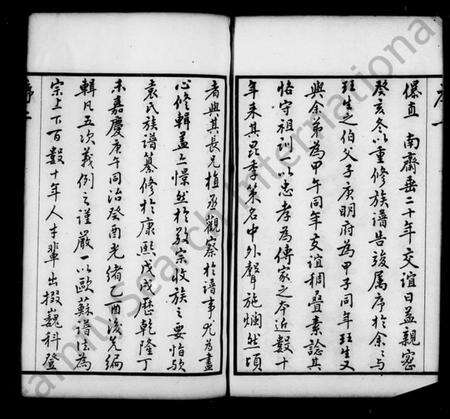 序一
儤直南齋垂二十年交誼日益親密
癸亥冬以重修族譜告竣属序於余余与
珏生之伯父子庚明府為甲子同年珏生又
與余弟為甲午同年交誼稠叠素諗其
恪守祖訓一以忠孝為傳家之本近數十
年来其昆季策名中外聲施爛然頃
者與其長兄植丞觀察於譜事尤為盡
心修輯盖上憬然於敬宗收族之要怡歟
袁氏族譜纂修於康熙戊戌歷乾隆丁
未嘉慶庚午同治癸酉光緒乙酉後先編
輯凡五次義例之謹嚴一以歐蘇譜法為
宗上下百數十年人才輩出掇巍科登
序二
FamilySearch International